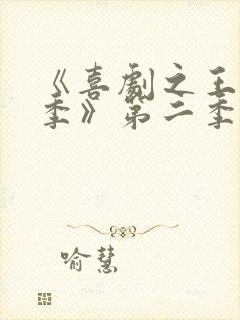 《喜劇之王
季》第二季
喻慧